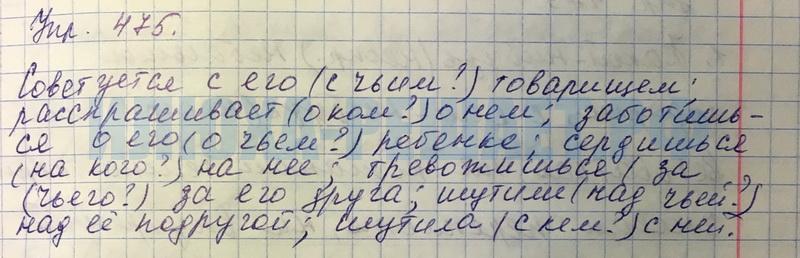 Упр. 475.
Советуется с его (с чьим?) товарищем;
расспрашивает (о ком?) о нем; заботишь-
ся о его (о чьем?) ребенке; сердишься
(на кого?) на нее; тревожишься (за
(чьего?) за его друга; шутили (над чьей?)
над её подругой; шутила (с кем?) с ней.